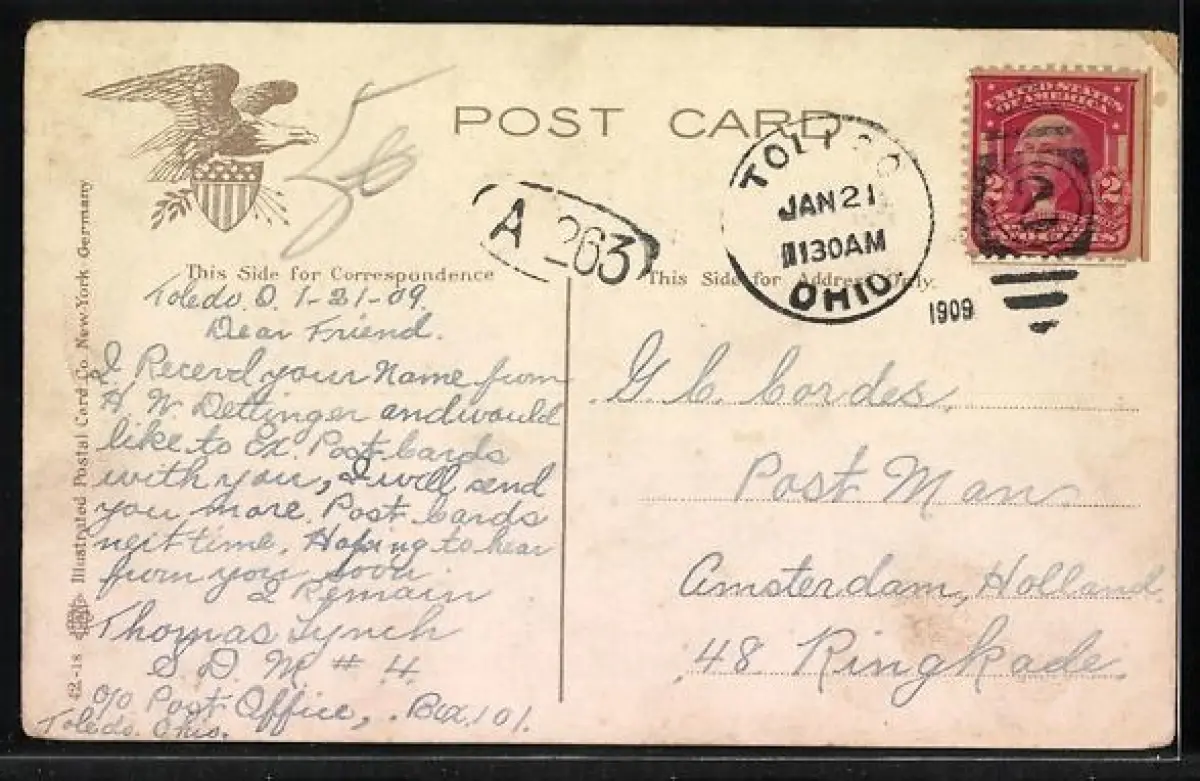 POST CARD
UNITED STATES
OF AMERICA
2 2
TOLEDO
JAN 21
1130AM
OHIO
1909
A 263
This Side for Correspondence
This Side for Address Only.
Toledo. O. 1-21-09.
Dear Friend.
I Recend your Name from
H. W. Dettinger and would
like to Ex. Post Cards
with you, I will send
you more Post Cards
next time. Hoping to hear
from you soon.
I Remain
Thomas Lynch
S. D. M # 4
c/o Post Office, Box 101.
Toledo. Ohio.
G. C. Cordes.
Post Man
Amsterdam, Holland.
48 Ringkade.
62.-18 Illustrated Postal Card Co. New York Germany